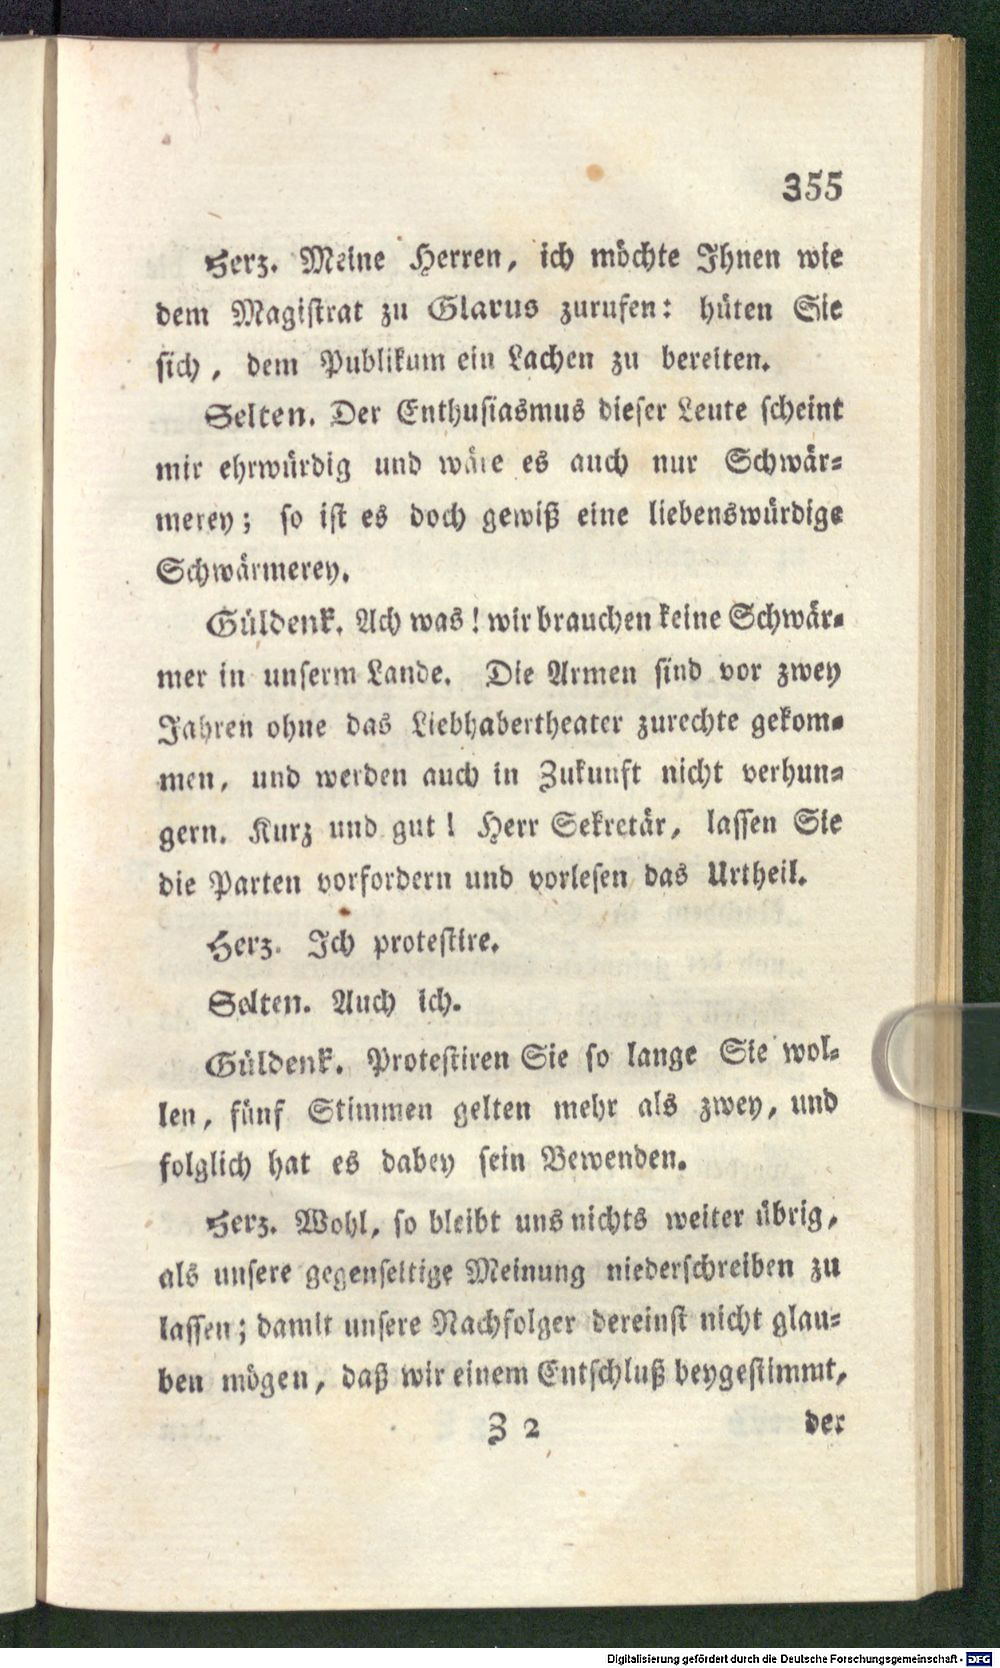 355
Herz. Meine Herren, ich möchte Ihnen wie
dem Magistrat zu Glarus zurufen: hüten Sie
sich, dem Publikum ein Lachen zu bereiten.
Selten. Der Enthusiasmus dieser Leute scheint
mir ehrwürdig und wäre es auch nur Schwär-
merey; so ist es doch gewiß eine liebenswürdige
Schwärmerey.
Güldenk. Ach was! wir brauchen keine Schwär-
mer in unserm Lande. Die Armen sind vor zwey
Jahren ohne das Liebhabertheater zurechte gekom-
men, und werden auch in Zukunft nicht verhun-
gern. Kurz und gut! Herr Sekretär, lassen Sie
die Parten vorfordern und vorlesen das Urtheil.
Herz. Ich protestire.
Selten. Auch ich.
Güldenk. Protestiren Sie so lange Sie wol-
len, fünf Stimmen gelten mehr als zwey, und
folglich hat es dabey sein Bewenden.
Herz. Wohl, so bleibt uns nichts weiter übrig,
als unsere gegenseitige Meinung niederschreiben zu
lassen; damit unsere Nachfolger dereinst nicht glau-
ben mögen, daß wir einem Entschluß beygestimmt,
Z 2 der
Digitalisierung gefördert durch die Deutsche Forschungsgemeinschaft - DFG